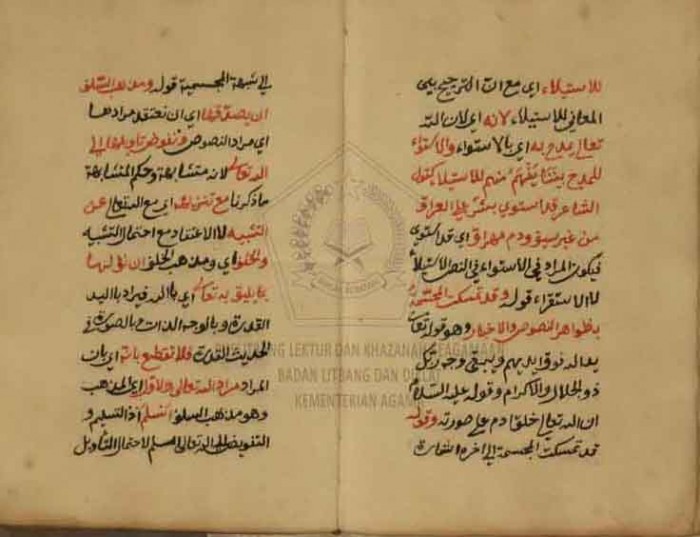 للاستيلاء اي مع ان الترجيح يلي
المعاني للاستيلاء لانه اي لان الله
تعالى يمدح به اي بالاستواء والاستواء
للمدح بيننا يفهم منه للاستيلاء كقول
الشاعر قد استوي بشر على العراق
من غير سيف ودم مهراق اي قد استوي
فيكون المراد في الاستواء في النص الاستيلاء
لا الاستقراء قوله وقد تمسكت المجسمة
بظواهر النصوص والاخبار وهو قوله تعالى
يد الله فوق ايديهم ويبقى وجه ربك
ذو الجلال والاكرام وقوله عليه السلام
ان الله تعالى خلق ادم على صورته وقوله
قد تمسكت المجسمة الى اخره اشارة
الى شبهة المجسمية قوله ومذهب السلف
ان يصدقها اي ان نعتقد مرادها
اي مراد النصوص ونفوض تاويلها الى
الله تعالى لانه متشابهة وحكم المتشابهة
ما ذكرنا مع تنزيهه اي مع الله تعالى عن
التشبيه لا الاعتقاد مع احتمال التشبيه
والخلف اي ومذهب الخلف ان نؤلها
بما يليق به تعالى اي بالله فيراد باليد
القدرة وبالوجه الذات وبالصورة في
الحديث القدرة فلا نقطع بانه اي بان
المراد مراد الله تعالى والاول اي المذهب
وهو مذهب السلف اسلم اذ التسليم و
التفويض الى الله تعالى اسلم لاحتمال التأويل
PUSLITBANG LEKTUR DAN KHAZANAH KEAGAMAAN
BADAN LITBANG DAN DIKLAT
KEMENTERIAN AGAMA